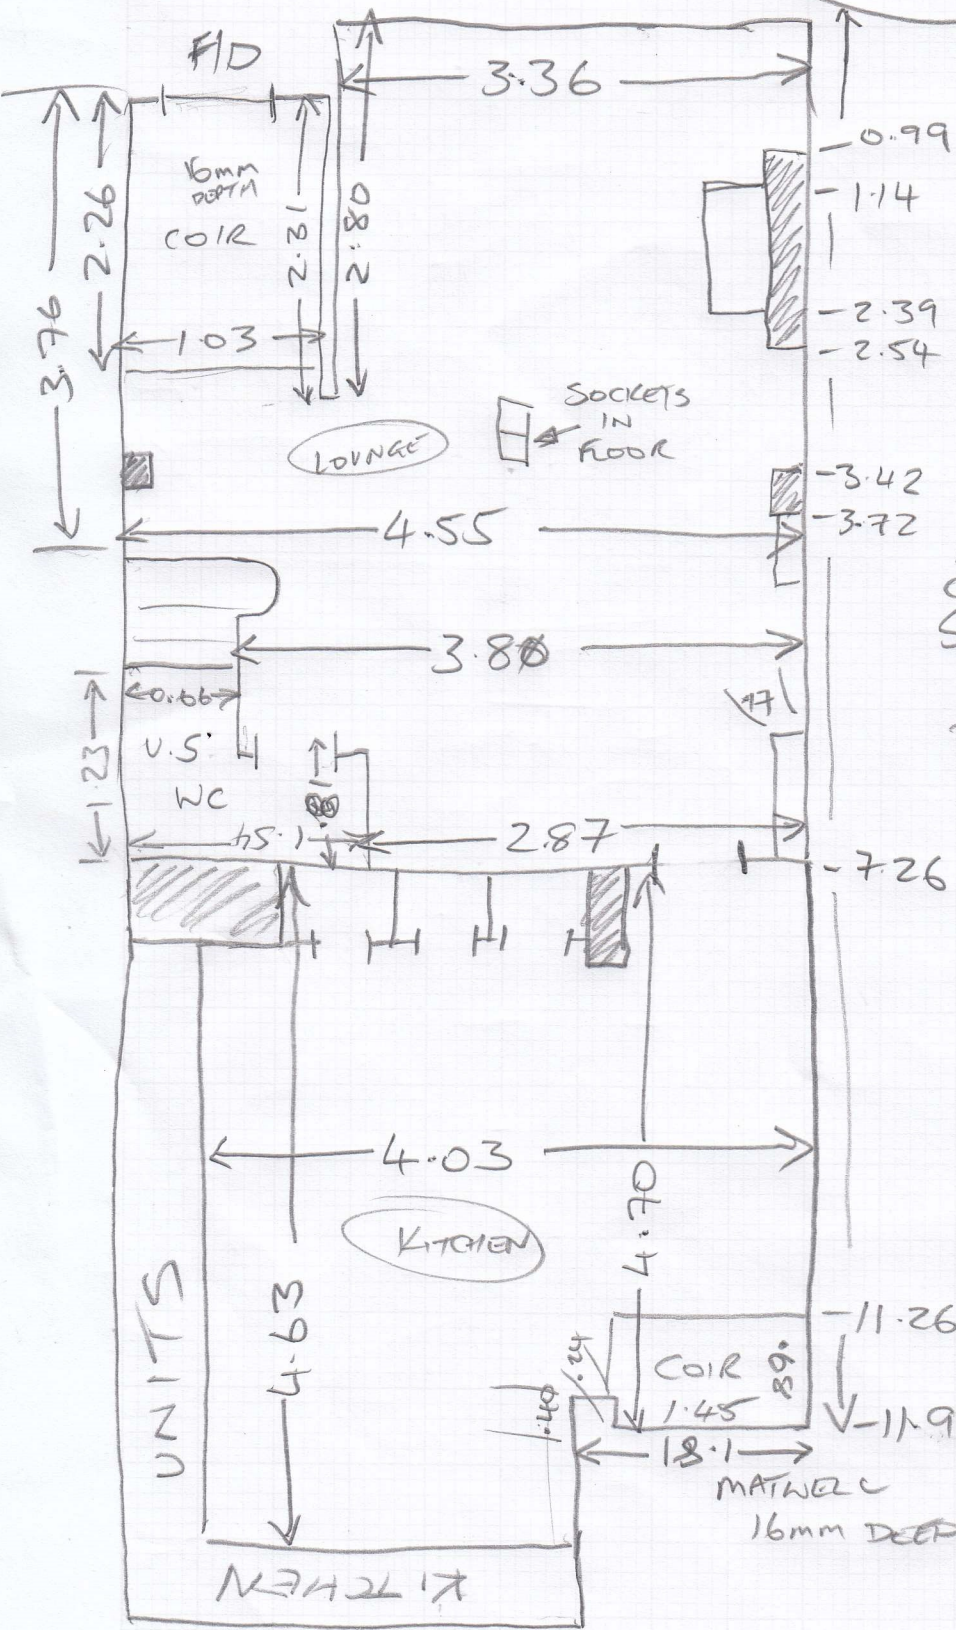 F/D
3.36
0.99
16mm
DEPTH
COIR
1.14
2.26
2.31
2.80
3.76
1.03
2.39
2.54
SOCKETS
IN
FLOOR
LOUNGE
3.42
3.72
4.55
3.80
0.66
1.23
U.S.
WC
.81
1.54
2.87
7.26
4.03
KITCHEN
4.70
4.63
UNITS
11.26
COIR
.68
1.45
.24
1.40
11.9
1.81
MATWELL
16mm DEEP
KITCHEN